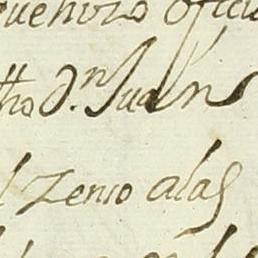 que hizo ofici
dho d.n Juan
l zenso alas